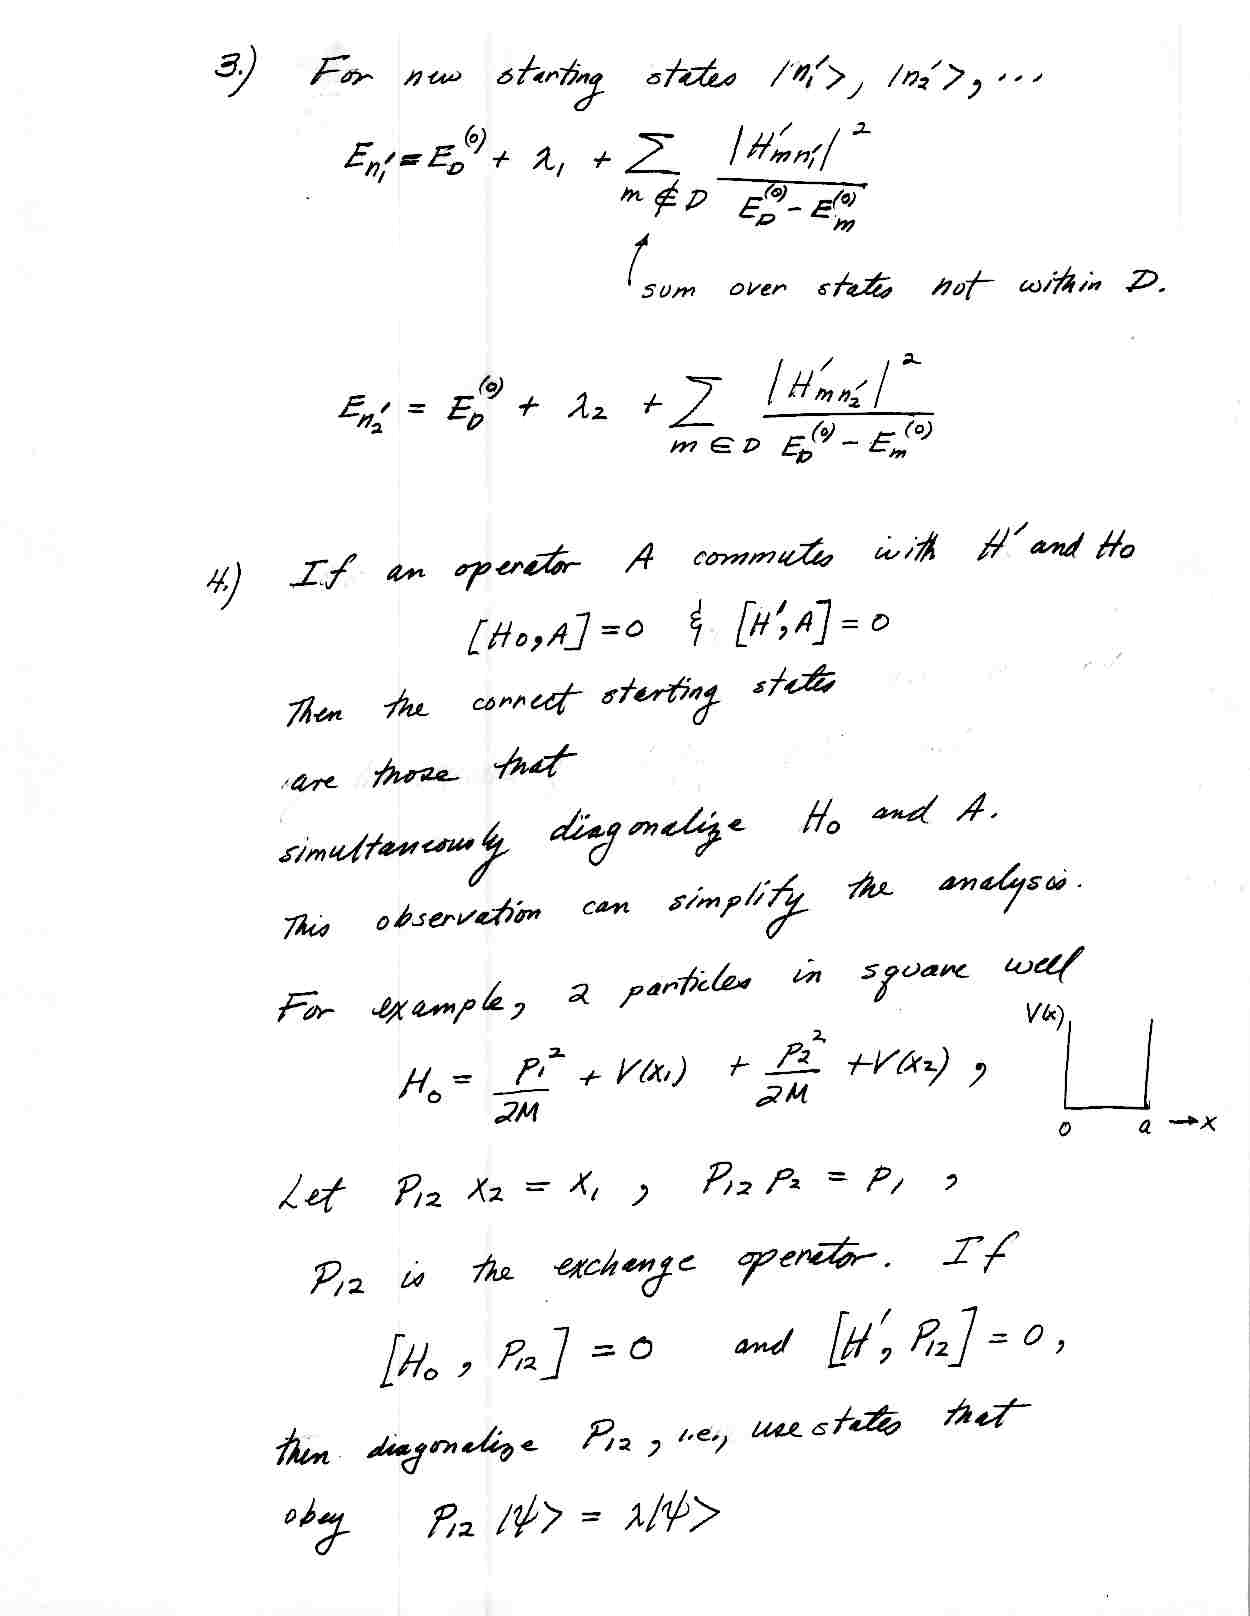 3.) For new starting states |n₁'>, |n₂'>, ...
E_{n₁'} = E_D^{(0)} + λ₁ + Σ_{m ∉ D} |H'_{mn₁'}|² / (E_D^{(0)} - E_m^{(0)})
sum over states not within D.
E_{n₂'} = E_D^{(0)} + λ₂ + Σ_{m ∈ D} |H'_{mn₂'}|² / (E_D^{(0)} - E_m^{(0)})
4.) If an operator A commutes with H' and H₀
[H₀, A] = 0 & [H', A] = 0
Then the correct starting states
are those that
simultaneously diagonalize H₀ and A.
This observation can simplify the analysis.
For example, 2 particles in square well
V(x)
H₀ = P₁²/2M + V(x₁) + P₂²/2M + V(x₂) ,
0 a → x
Let P₁₂ x₂ = x₁ , P₁₂ P₂ = P₁ ,
P₁₂ is the exchange operator. If
[H₀ , P₁₂] = 0 and [H' , P₁₂] = 0 ,
then diagonalize P₁₂ , i.e., use states that
obey P₁₂ |ψ> = λ|ψ>